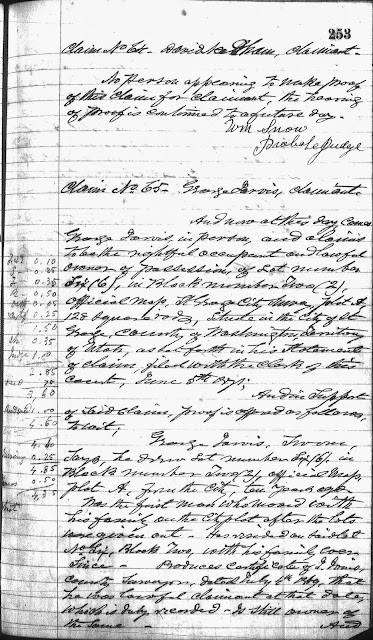 253
Claim No 64. David H. Cham, Claimant.
No Person appearing to make proof
of this Claim for Claimant, the hearing
of proof is continued to a future day.
Wm Snow
Probate Judge
Claim No. 65. George Jarvis, Claimant.
And now at this day comes
George Jarvis, in person, and claims
to be the rightful occupant and lawful
owner of possession, of Lot number
Six (6), in Block number Two (2),
official map, St George City Survey, plot A
128 square rods, situate in the City of St
George County of Washington Territory
of Utah, as set forth in his statement
of claim, filed with the Clerk of this
Court, June 5th 1871;
And in Support
of said Claim, proof is offered as follows,
to wit;
George Jarvis, Sworn,
Says he drew Lot number Six (6) in
Block number Two (2) official Map,
plot A, from the City, ten years ago
Was the first man who moved with
his family on the City plot after the lots
were given out - Has resided on said Lot
No Six, Block Two, with his family ever
Since - Produces Certificate of I. Ivins,
County Surveyor, dated July 6th 1869, that
he was lawful claimant at that date,
which is duly recorded - Is still owner of
the same - And
0.10
0.25
0.25
0.50
0.25
1.50
0.35
1.00
2.85
3.60
1.00
4.60
4.60
0.25
4.85
0.50
4.35